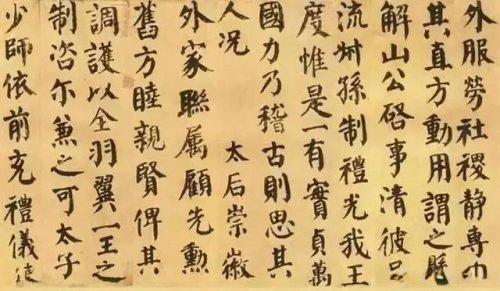 外服勞社稷靜專
其直方動用謂之懸
解山公啓事清彼品
流叔孫制禮光我王
度惟是一有實貞萬
國力乃稽古則思其
人況 太后崇徽
外家聯属顧先勳
舊方睦親賢俾其
調護以全羽翼一王之
制咨尔兼之可太子
少師依前充禮儀使